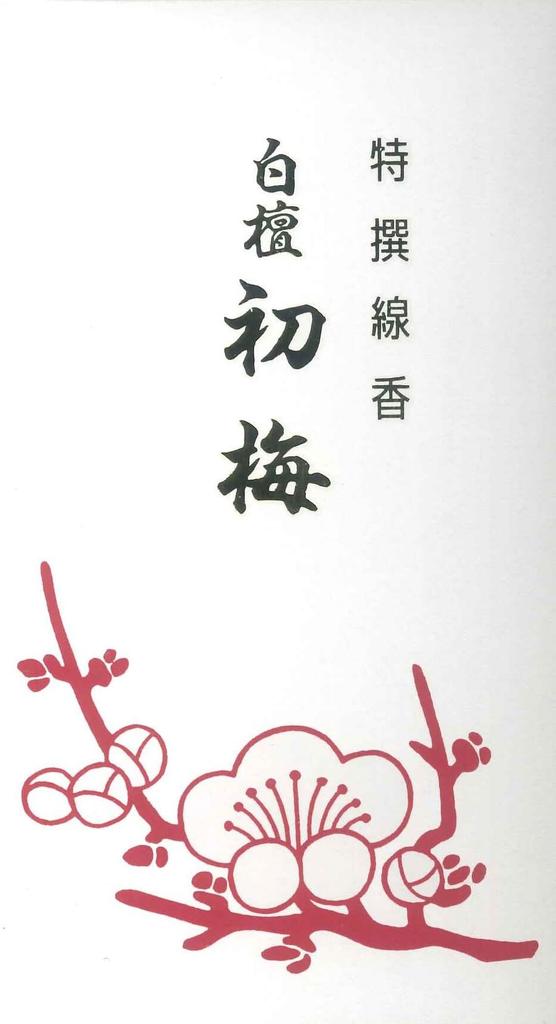 特撰線香
白檀 初梅